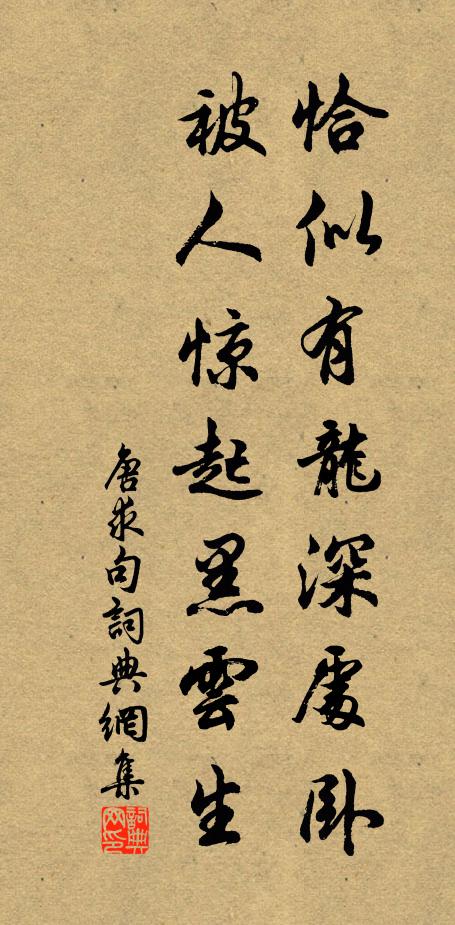 恰似有龍深處臥
被人惊起黑雲生
唐求句詞典網集
詞典网印